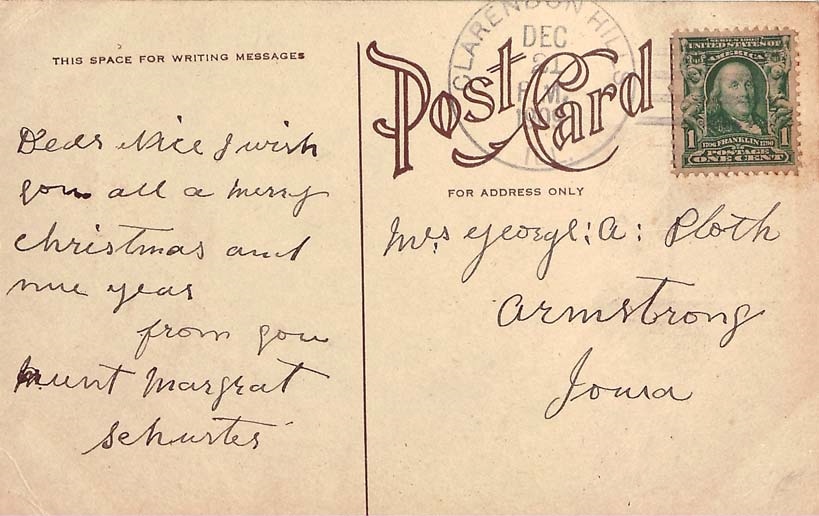 THIS SPACE FOR WRITING MESSAGES
Dear Nice I wish
you all a merry
christmas and
nue year
from you
aunt Margrat
Schurter
Post Card
FOR ADDRESS ONLY
CLARENDON HILLS
DEC
21
P.M.
SERIES 1902
UNITED STATES OF
AMERICA
1 1
1706 FRANKLIN 1790
POSTAGE
ONE CENT
Mrs George: A: Ploth
Armstrong
Iowa